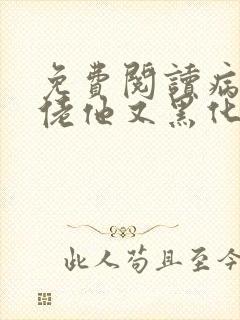 免費閱讀病
佬他又黑化
此人苟且至今